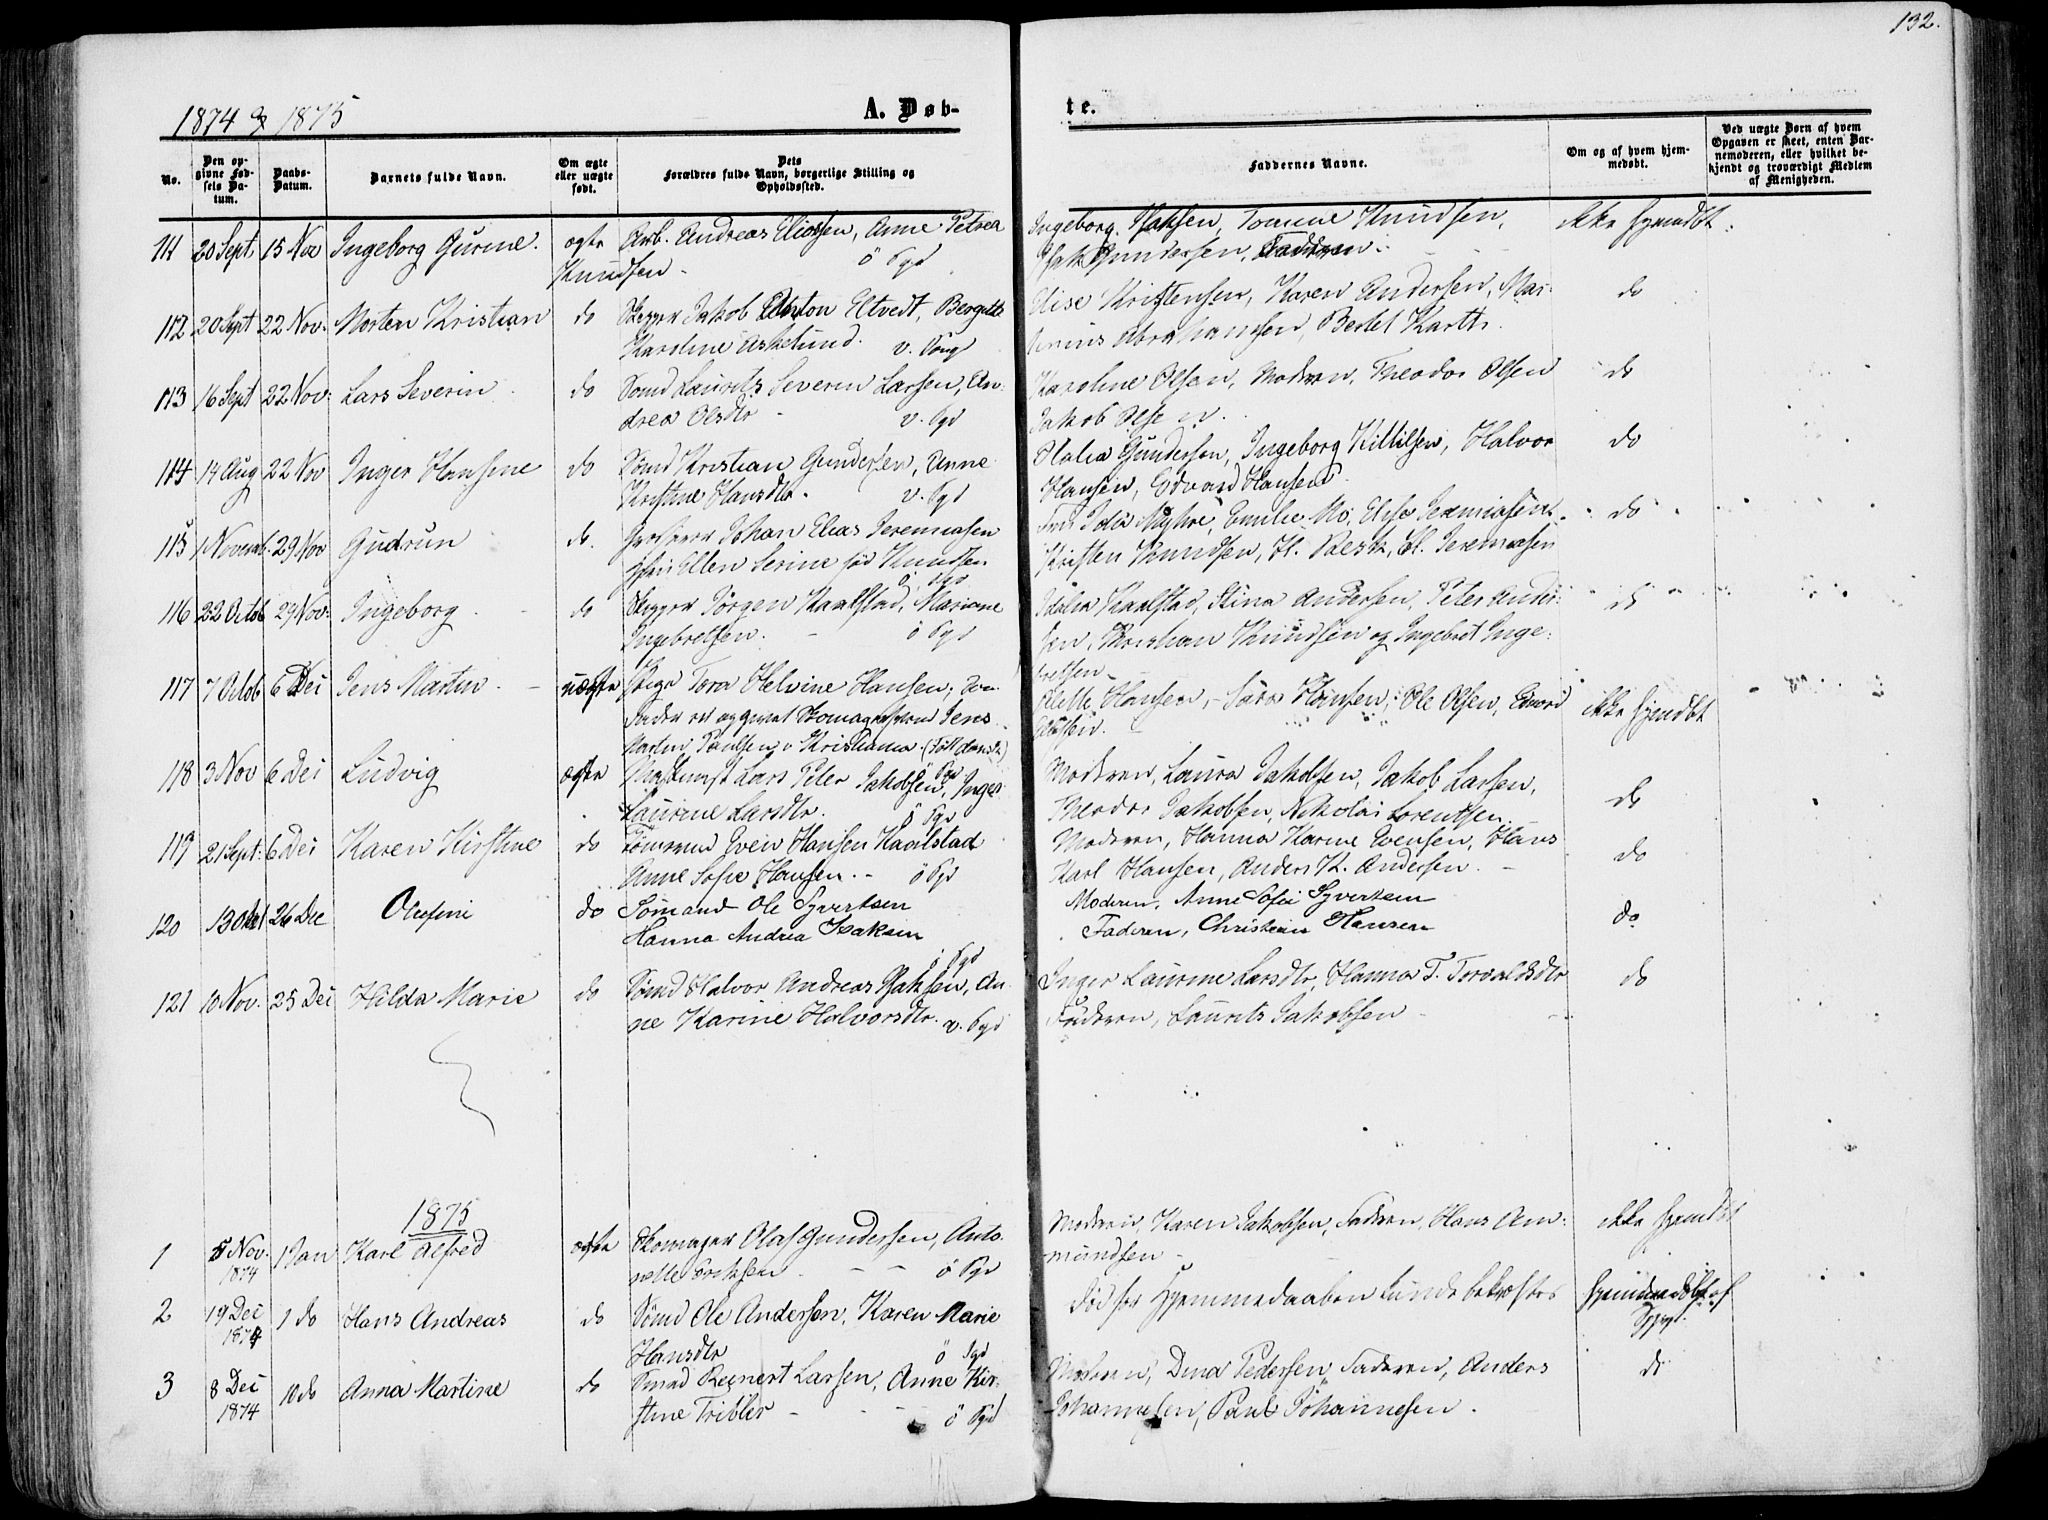 132.
1874 & 1875
A. Døb-
te.
No.
Den opgivne Fødsels Datum.
Daabs-Datum.
Barnets fulde Navn.
Om ægte eller uægte født.
Dets Forældres fulde Navn, borgerlige Stilling og Opholdssted.
Faddernes Navne.
Om og af hvem hjemmedøbt.
Ved uægte Børn af hvem Opgaven er skeet, enten Barnemoderen, eller hvilket bekjendt og troværdigt Medlem af Menigheden.
111 20 Sept 15 Nov Ingeborg Gurine. ægte Arb. Andreas Eliassen, Anne Petrea
Knudsen - ö Pgd
Ingeborg Isaksen, Knudsen,
Isak Gundersen, Faderen. ikke hjemdøbt.
112 20 Sept 22 Nov. Morten Kristian do Skipper Jakob Anton Eltvedt, Bergitte
Karoline Askelund. v. Pgd
Elise Kristensen, Karen Andersen, Mar-
Abrahamsen, Bertel do
113 16 Sept 22 Nov. Lars Severin do Sømd Laurits Severin Larsen, An-
drea Olsdtr - v. Pgd
Karoline Olsen, Moderen, Theodor Olsen
Jakob Olsen. do
114 14 Aug 22 Nov Inger Hansine do Sømd Kristian Gundersen, Anne
Kristine Hansdtr. v. Pgd
Gundersen, Ingeborg Kittilsen, Halvor
Hansen, Edvard Hansen do
115 1 Novemb. 29 Nov Gudrun do. Johan Elias Jeremiasen
Ellen Serine fød Knudsen
ö Pgd
Myhre, Emilie Mo, Elise Jeremiasen
Kristen Knudsen, H. Jeremiasen do
116 22 Octob 29 Nov. Ingeborg do Skipper Jørgen Kaalstad, Mariane
Ingebretsen. - ö Pgd
Kaalstad, Stina Andersen, Peter Ander-
sen, Kristian Knudsen og Ingebret Inge-
bretsen do
117 7 Octob 6 Dec Jens Martin - uægte Pige Tora Helvine Hansen,
Fader er opgivet Skomagersvend Jens
Martin Paulsen i Kristiania.
ö Pgd
Hansen, Sara Hansen, Ole Olsen, Edvard
ikke hjemdøbt
118 3 Nov 6 Dec Ludvig ægte Lars Peter Jakobsen, Inger
Laurine Larsdtr. ö Pgd
Moderen, Laura Jakobsen, Jakob Larsen,
Theodor Jakobsen, Nikolai Lorentsen. do
119 21 Sept. 6 Dec Karen Kirstine do Tømmermd Even Hansen Kaalstad
Anne Sofie Hansen. - ö Pgd
Moderen, Hanna Karine Evensen, Hans
Karl Hansen, Anders K. Andersen. - do
120 13 Okt 26 Dec Olufine do Sømand Ole Syvertsen
Hanna Andrea Isaksen
ö Pgd
Moderen, Anne Sofie Syvertsen
Faderen, Christian Hansen do
121 10 Nov. 25 Dec Hilda Marie do Sømd Halvor Andreas Isaksen, An-
ne Karine Halvorsdtr. v. Pgd
Inger Laurine Larsdtr, Hanna T. Torvaldsdtr
Faderen, Laurits Jakobsen do
1875
1 5 Nov. 1874 1 Jan Karl Alfred ægte Skomager Olaf Gundersen, Anto-
nette Eriksen - - ö Pgd
Moderen, Karen Jakobsen, Faderen, Hans Am-
mundsen - ikke hjemdøbt
2 19 Dec 1874 1 do Hans Andreas do Sømd Ole Andersen, Karen Marie
Hansdtr ö Pgd
død før Hjemmedaaben kunde bekræftes hjemmedøbt af
3 8 Dec 1874 10 do Anna Martine do Sømd Regnert Larsen, Anne Kir-
stine Tribler - - ö Pgd
Moderen, Dina Pedersen, Faderen, Anders
Johannesen, Paul Johannesen. do